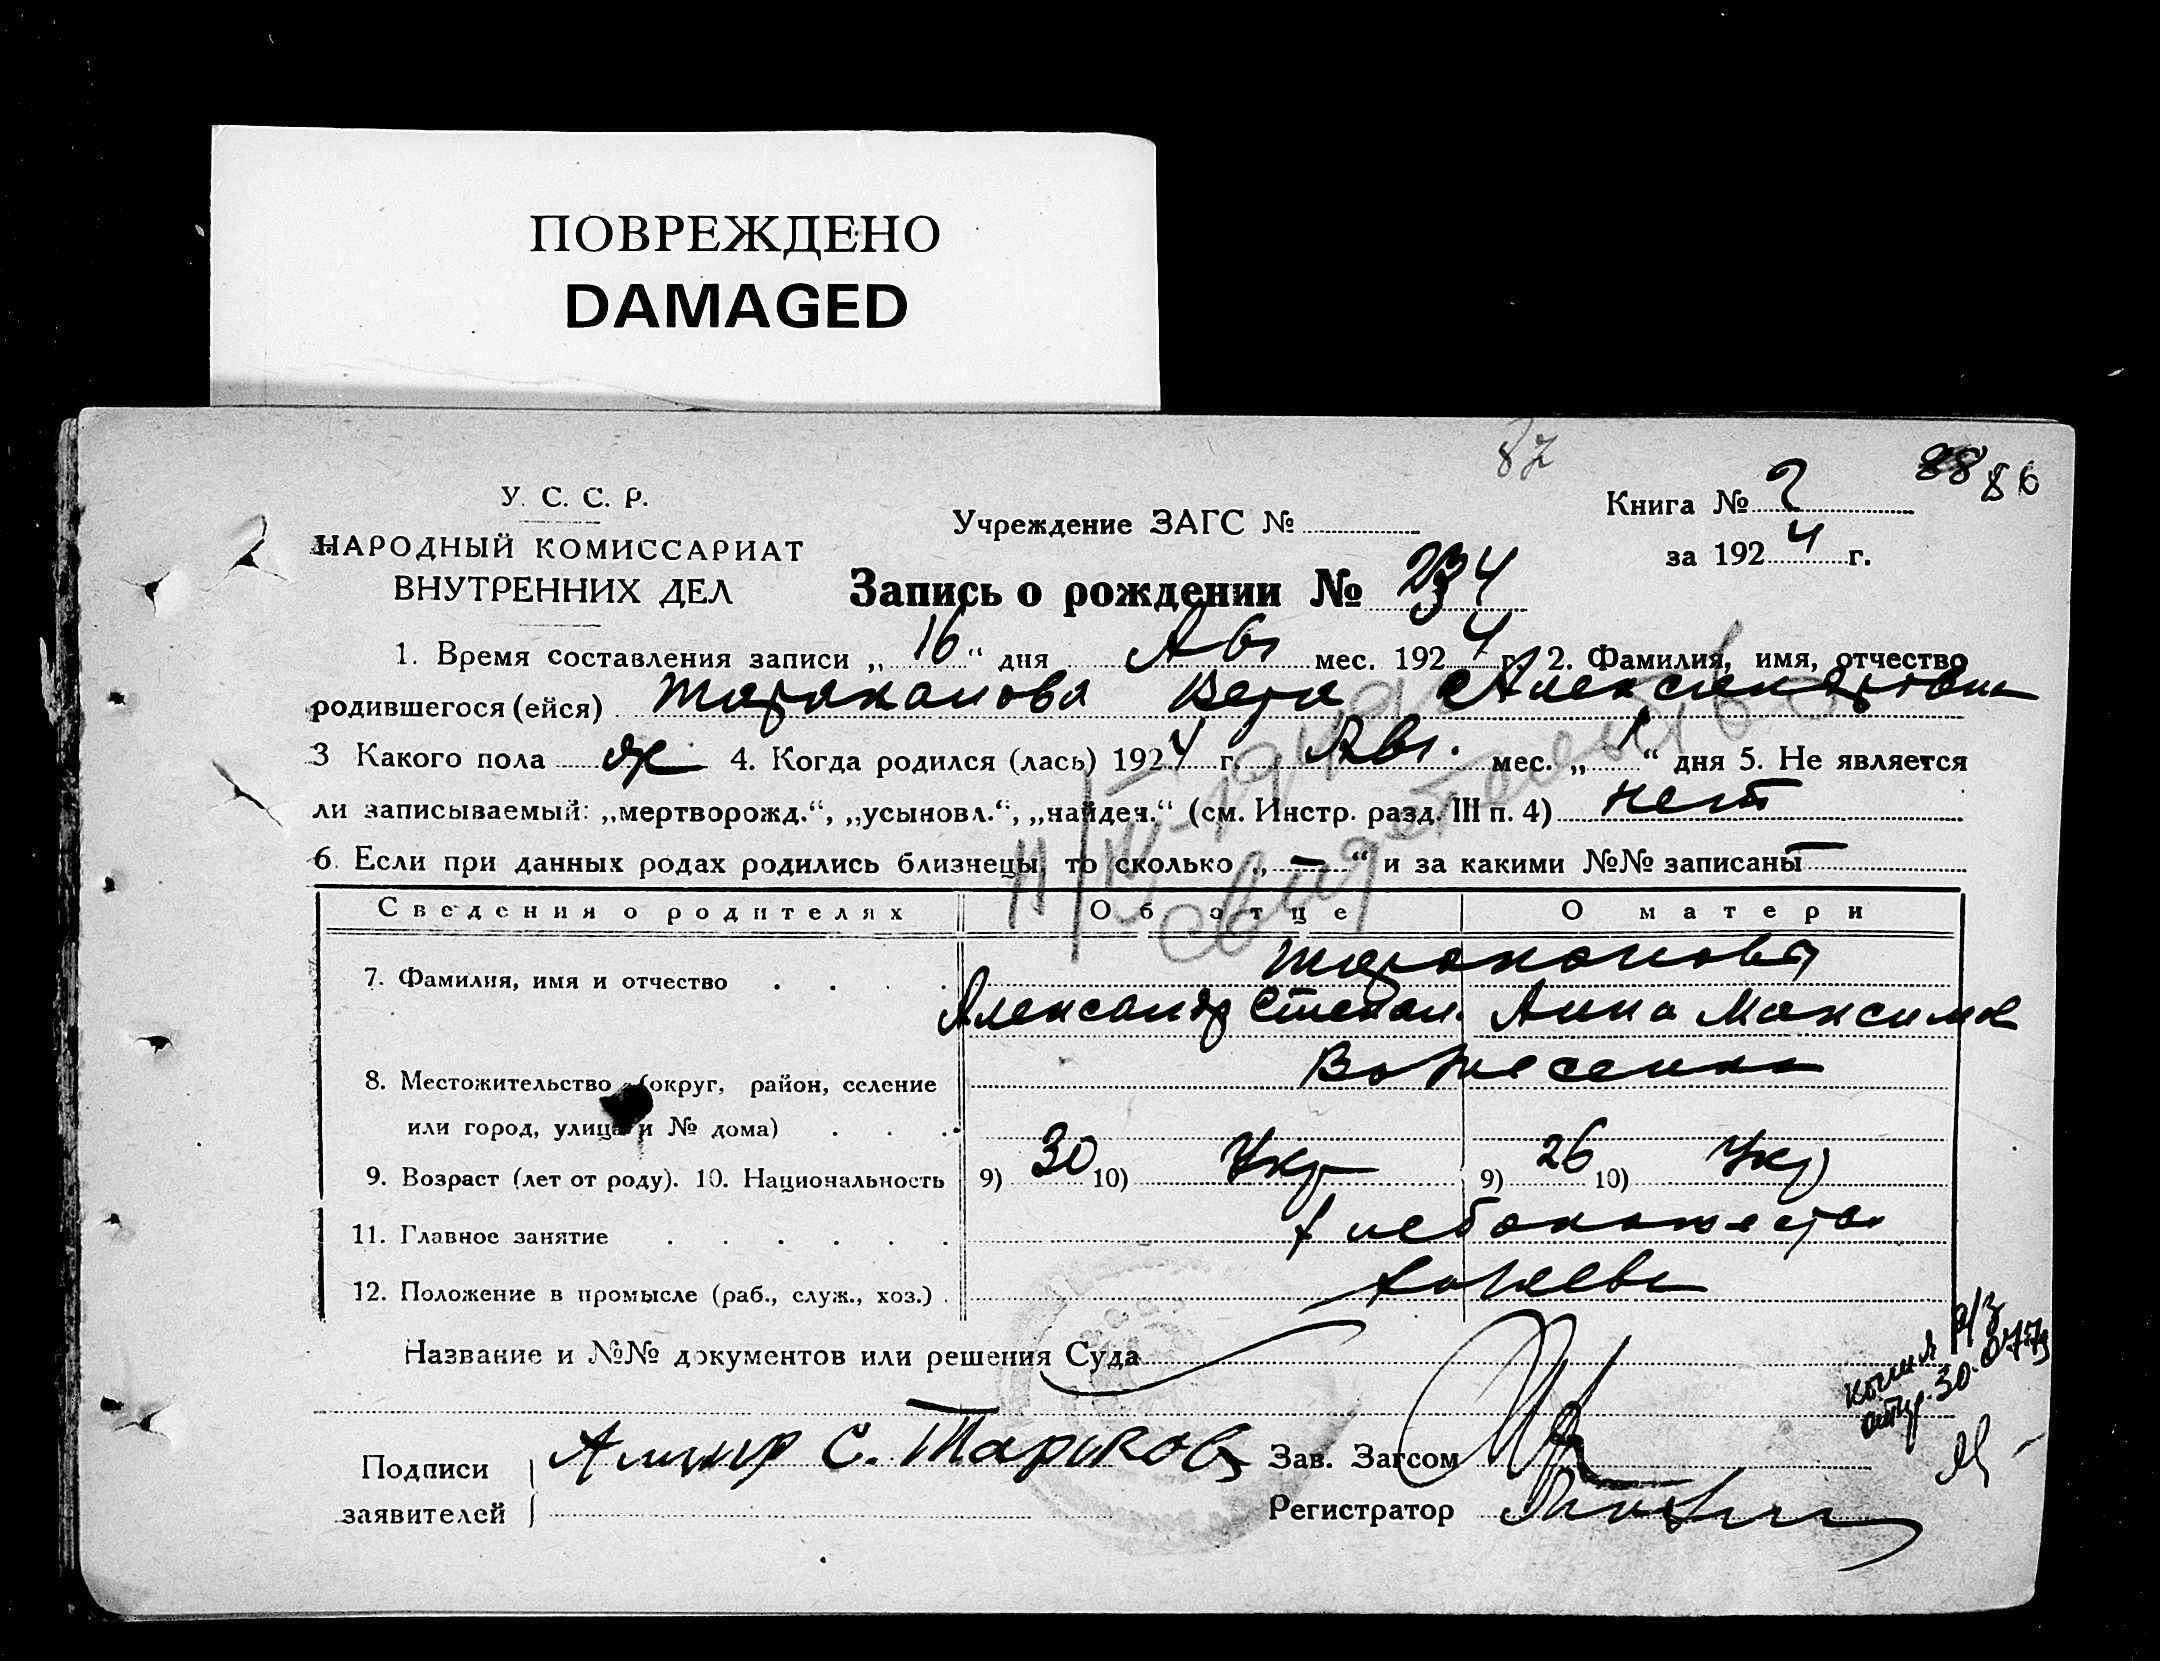 ПОВРЕЖДЕНО
DAMAGED
87
88 86
У. С. С. Р.
НАРОДНЫЙ КОМИССАРИАТ
ВНУТРЕННИХ ДЕЛ
Учреждение ЗАГС №
Книга № 2
за 1924 г.
Запись о рождении № 234
1. Время составления записи „16“ дня Авг мес. 1924 г. 2. Фамилия, имя, отчество
родившегося (ейся) Тараканова Вера Александровна
3 Какого пола ж 4. Когда родился (лась) 1924 г. Авг. мес. „1“ дня 5. Не является
ли записываемый: „мертворожд.“, „усыновл.“, „найден.“ (см. Инстр. разд. III п. 4) нет
6. Если при данных родах родились близнецы, то сколько „—“ и за какими №№ записаны —
Свидетельство
Сведения о родителях Об отце О матери
7. Фамилия, имя и отчество Тараканова
Александр Степан. Анна Максимов
8. Местожительство (округ, район, селение Вознесенка
или город, улица и № дома)
9. Возраст (лет от роду). 10. Национальность 9) 30 10) Укр 9) 26 10) Укр
11. Главное занятие хлебопашество
12. Положение в промысле (раб., служ., хоз.) хозяева
Название и №№ документов или решения Суда
копия
Подписи
заявителей
С.
Зав. Загсом
Регистратор